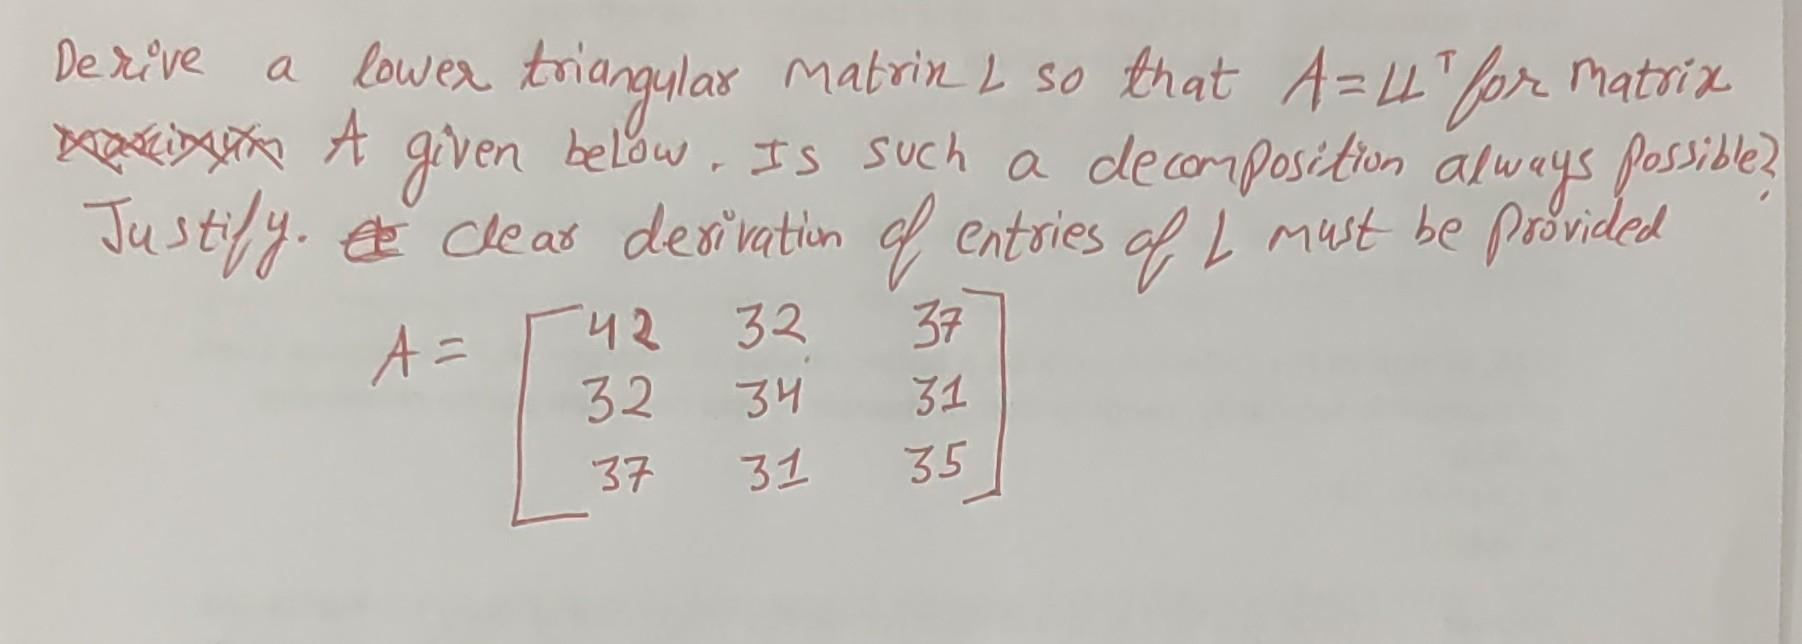 Derive a lower triangular matrix L so that A=LLᵀ for matrix
A given below. Is such a decomposition always possible?
Justify. clear derivation of entries of L must be provided
A= [42 32 37
32 34 31
37 31 35]